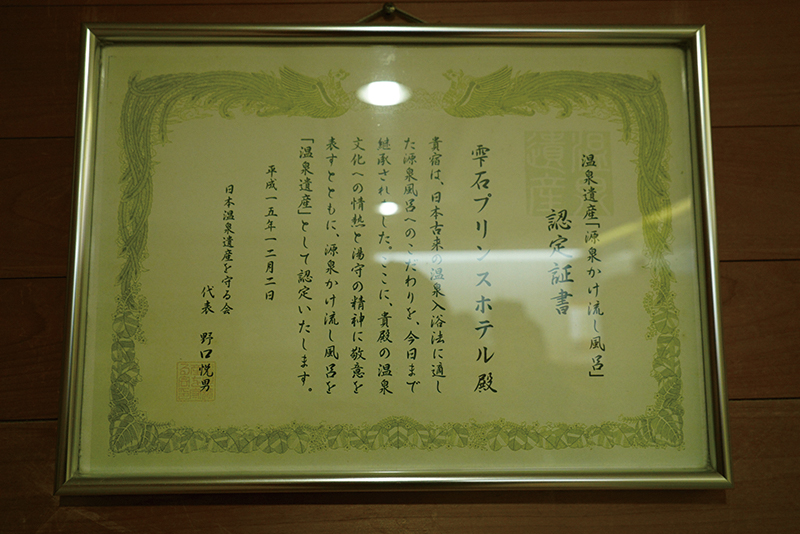 温泉遺産「源泉かけ流し風呂」
認定証書
温泉遺産
雫石プリンスホテル殿
貴宿は、日本古来の温泉入浴法に適し
た源泉風呂へのこだわりを、今日まで
継承されました。ここに、貴殿の温泉
文化への情熱と湯守の精神に敬意を
表すとともに、源泉かけ流し風呂を
「温泉遺産」として認定いたします。
平成一五年一二月二日
日本温泉遺産を守る会
代表 野口悦男